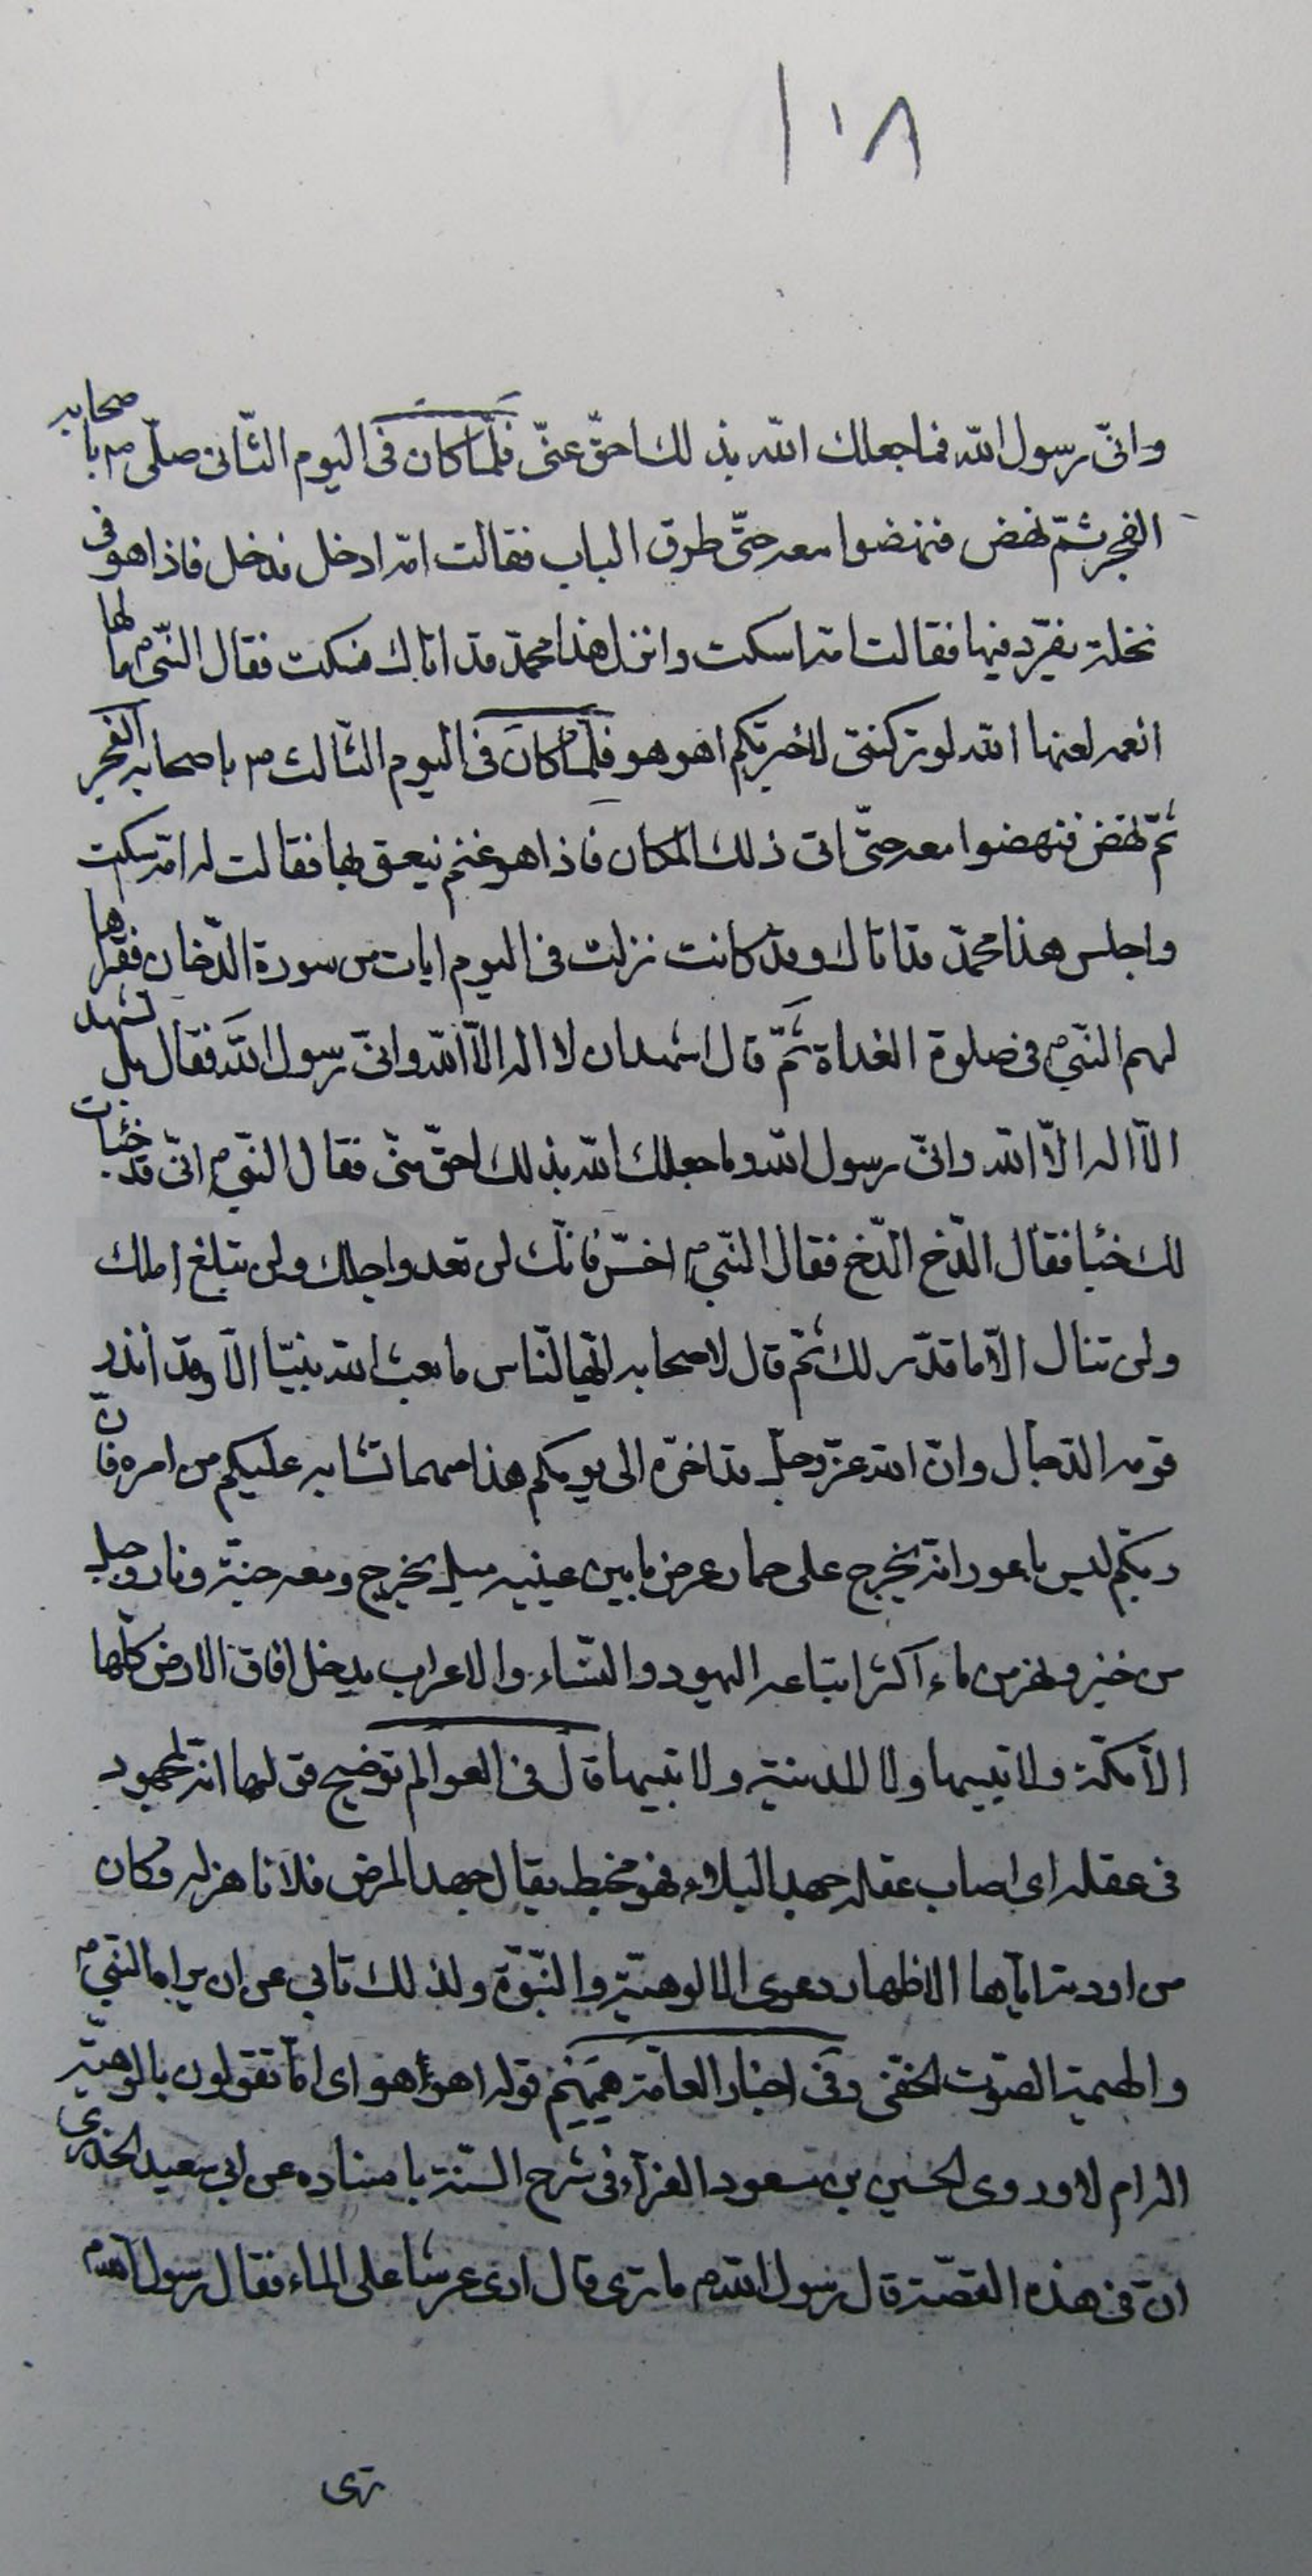 ١٠٨
وانّى رسول الله فما جعلك الله بذلك احقّ عنّى فلمّا كان فى اليوم الثّانى صلّى ص باصحابه
الفجر ثمّ نهض فنهضوا معه حتّى طرق الباب فقالت امّه ادخل فدخل فاذا هو فى
نخلة يغرّد فيها فقالت امّه اسكت وانزل هذا محمّد قد اتاك فسكت فقال النّبى ص ما لها
انعم لعنها الله لو تركتنى لاخبرتكم اهو هو فلمّا كان فى اليوم الثّالث ص باصحابه الفجر
ثمّ نهض فنهضوا معه حتّى اتى ذلك المكان فاذا هو غنم ينعق بها فقالت له امّه سكت
واجلس هذا محمّد قد اتاك وقد كانت نزلت فى اليوم ايات من سورة الدّخان فقراها
لهم النّبى ص فى صلوة الغداة ثمّ قال اشهد ان لا اله الاّ الله وانّى رسول الله فقال بل تشهد
الاّ اله الاّ الله وانّى رسول الله وما جعلك الله بذلك احقّ منّى فقال النّبى ص انّى قد خبأت
لك خبئا فقال الدّخ الدّخ فقال النّبى ص اخسّ فانّك لن تعدو اجلك ولن تبلغ املك
ولن تنال الاّ ما قدّر لك ثمّ قال لاصحابه ايّها النّاس ما بعث الله نبيّا الاّ وقد انذر
قومه الدّجال وانّ الله عزّ وجلّ قد اخّره الى يومكم هذا مهما تشابه عليكم من امره فانّ
ربّكم ليس باعور انّه يخرج على حمار عرض ما بين عينيه ميل يخرج ومعه جنّة ونار وجبل
من خبز ونهر من ماء اكثر اتباعه اليهود والنّساء والاعراب يدخل افاق الارض كلّها
الاّ مكّة ولا بتيها ولا المدينة ولا بتيها قال فى العوالم توضيح قولها انّه لمجهود
فى عقله اى اصاب عقله جهد البلاء فهو مخبط يقال جهد المرض فلانا هزله وكان
من اودته اياها الاظهار دعوى الالوهيّة والنّبوّة ولذلك تابى عن ان يراه النّبى ص
والهمهمة الصّوت الخفى وفى اخبار العامّة يهمهم قوله اهو اهو اى اما تقولون بالوهيّة
اله ام لا وروى الحسين بن مسعود الفرّاء فى شرح السّنّة باسناده عن ابى سعيد الخدرى
انّ فى هذه القصّة قال رسول الله ص ما ترى قال ارى عرشا على الماء فقال رسول الله ص
ترى